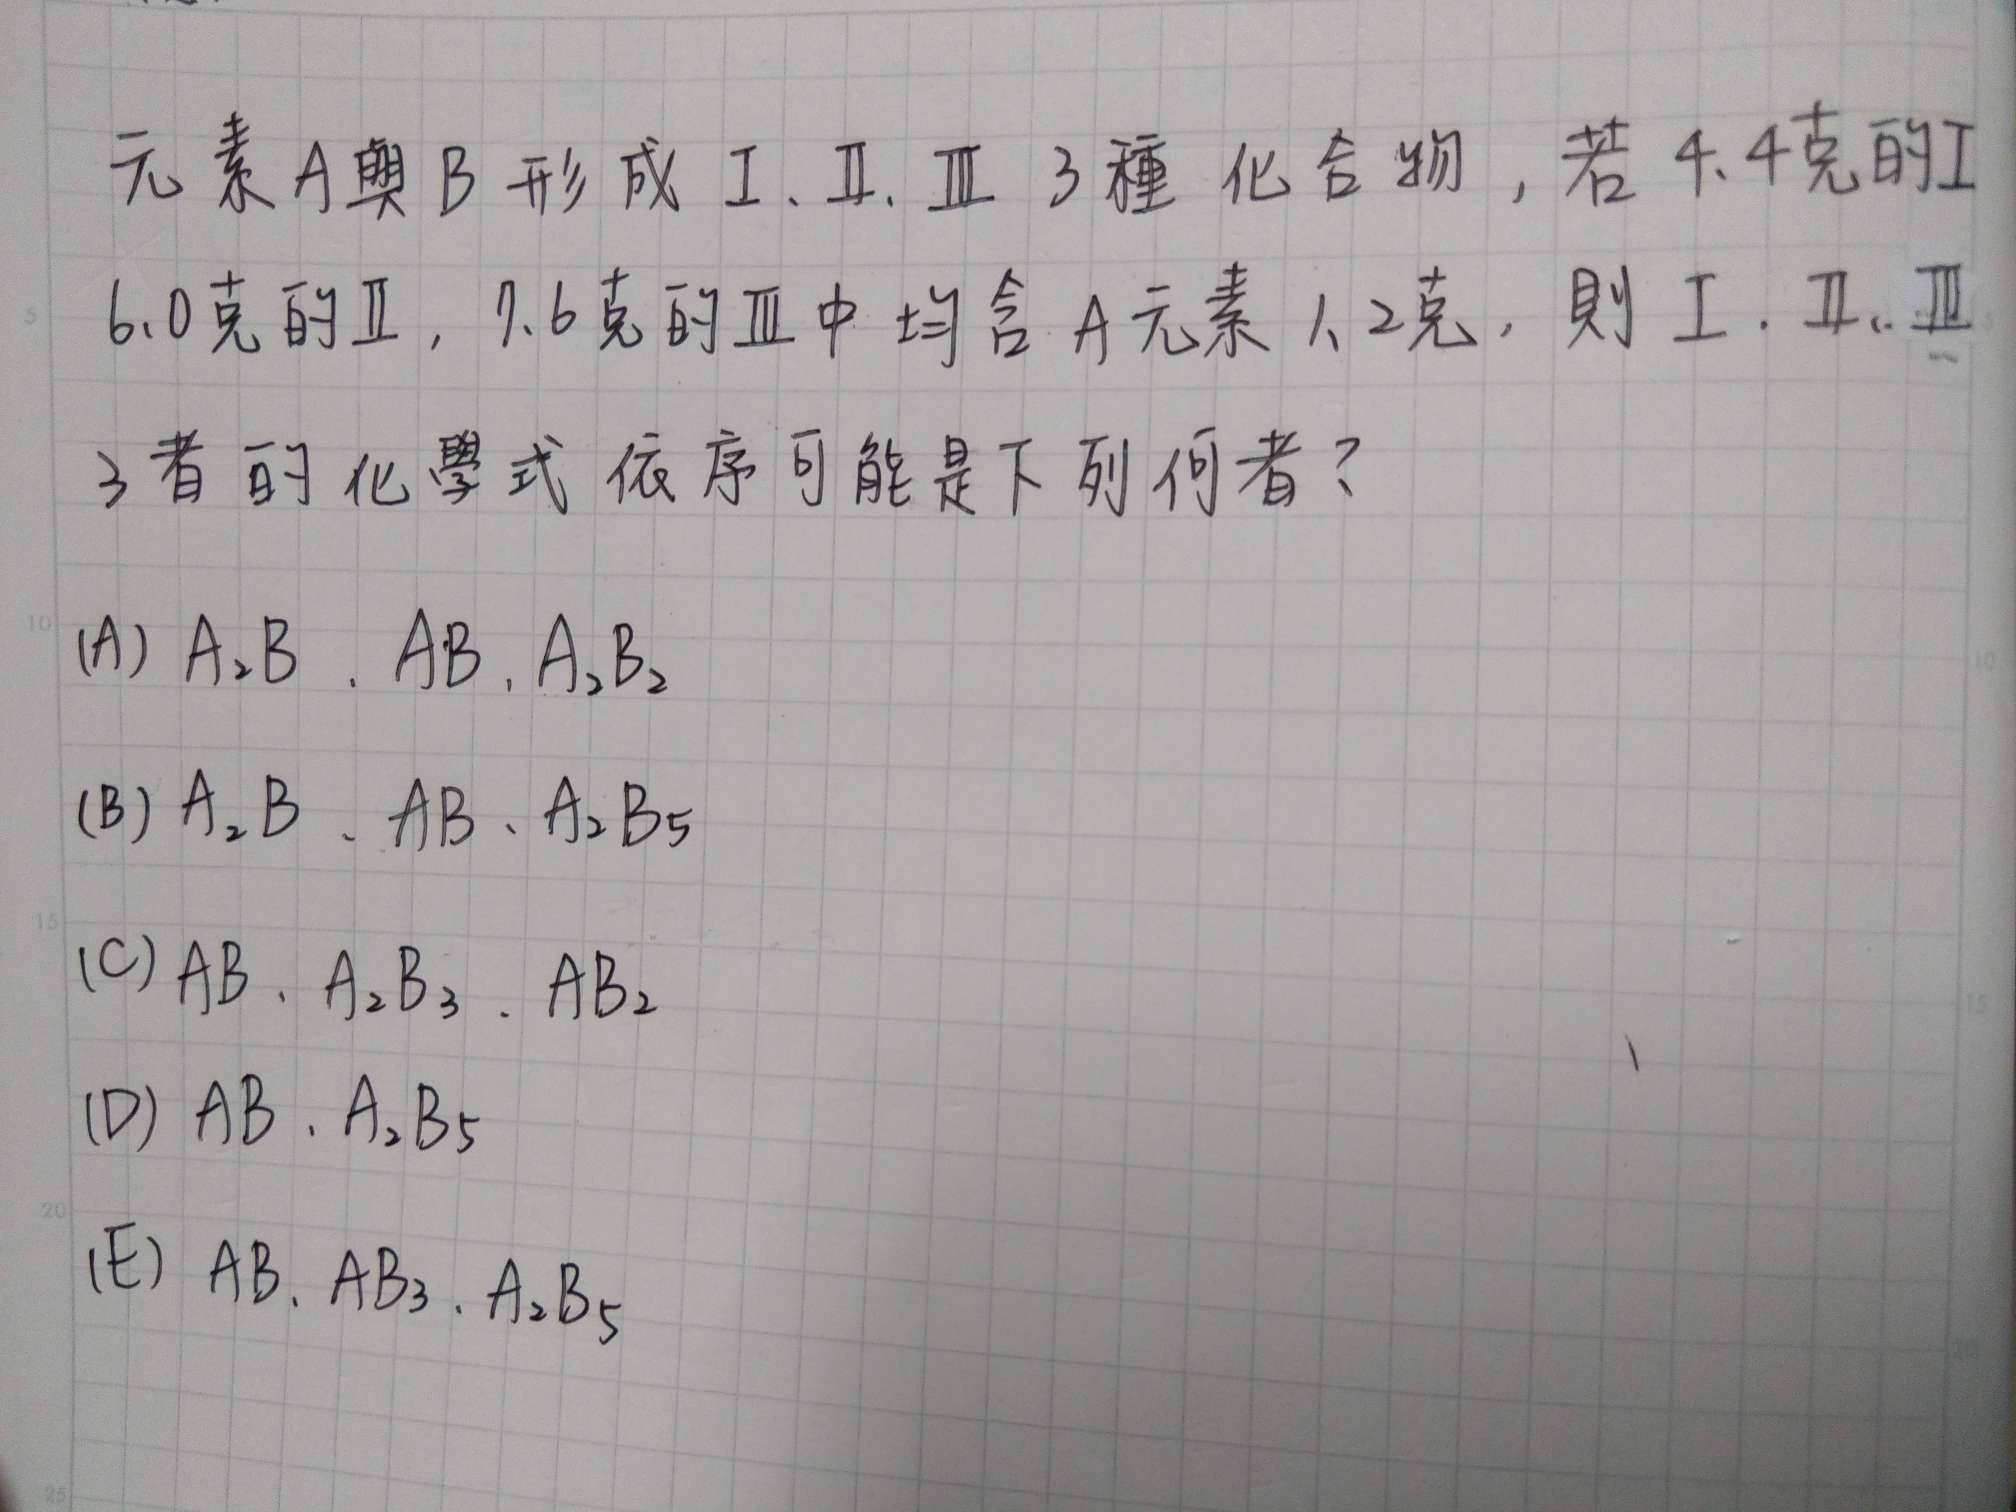 元素A與B形成Ⅰ、Ⅱ、Ⅲ 3種化合物,若4.4克的Ⅰ
6.0克的Ⅱ,7.6克的Ⅲ中均含A元素1.2克,則Ⅰ、Ⅱ、Ⅲ
3者的化學式依序可能是下列何者?
(A) A₂B、AB、A₂B₂
(B) A₂B、AB、A₂B₅
(C) AB、A₂B₃、AB₂
(D) AB、A₂B₅
(E) AB、AB₃、A₂B₅
5
10
15
20
25
10
15